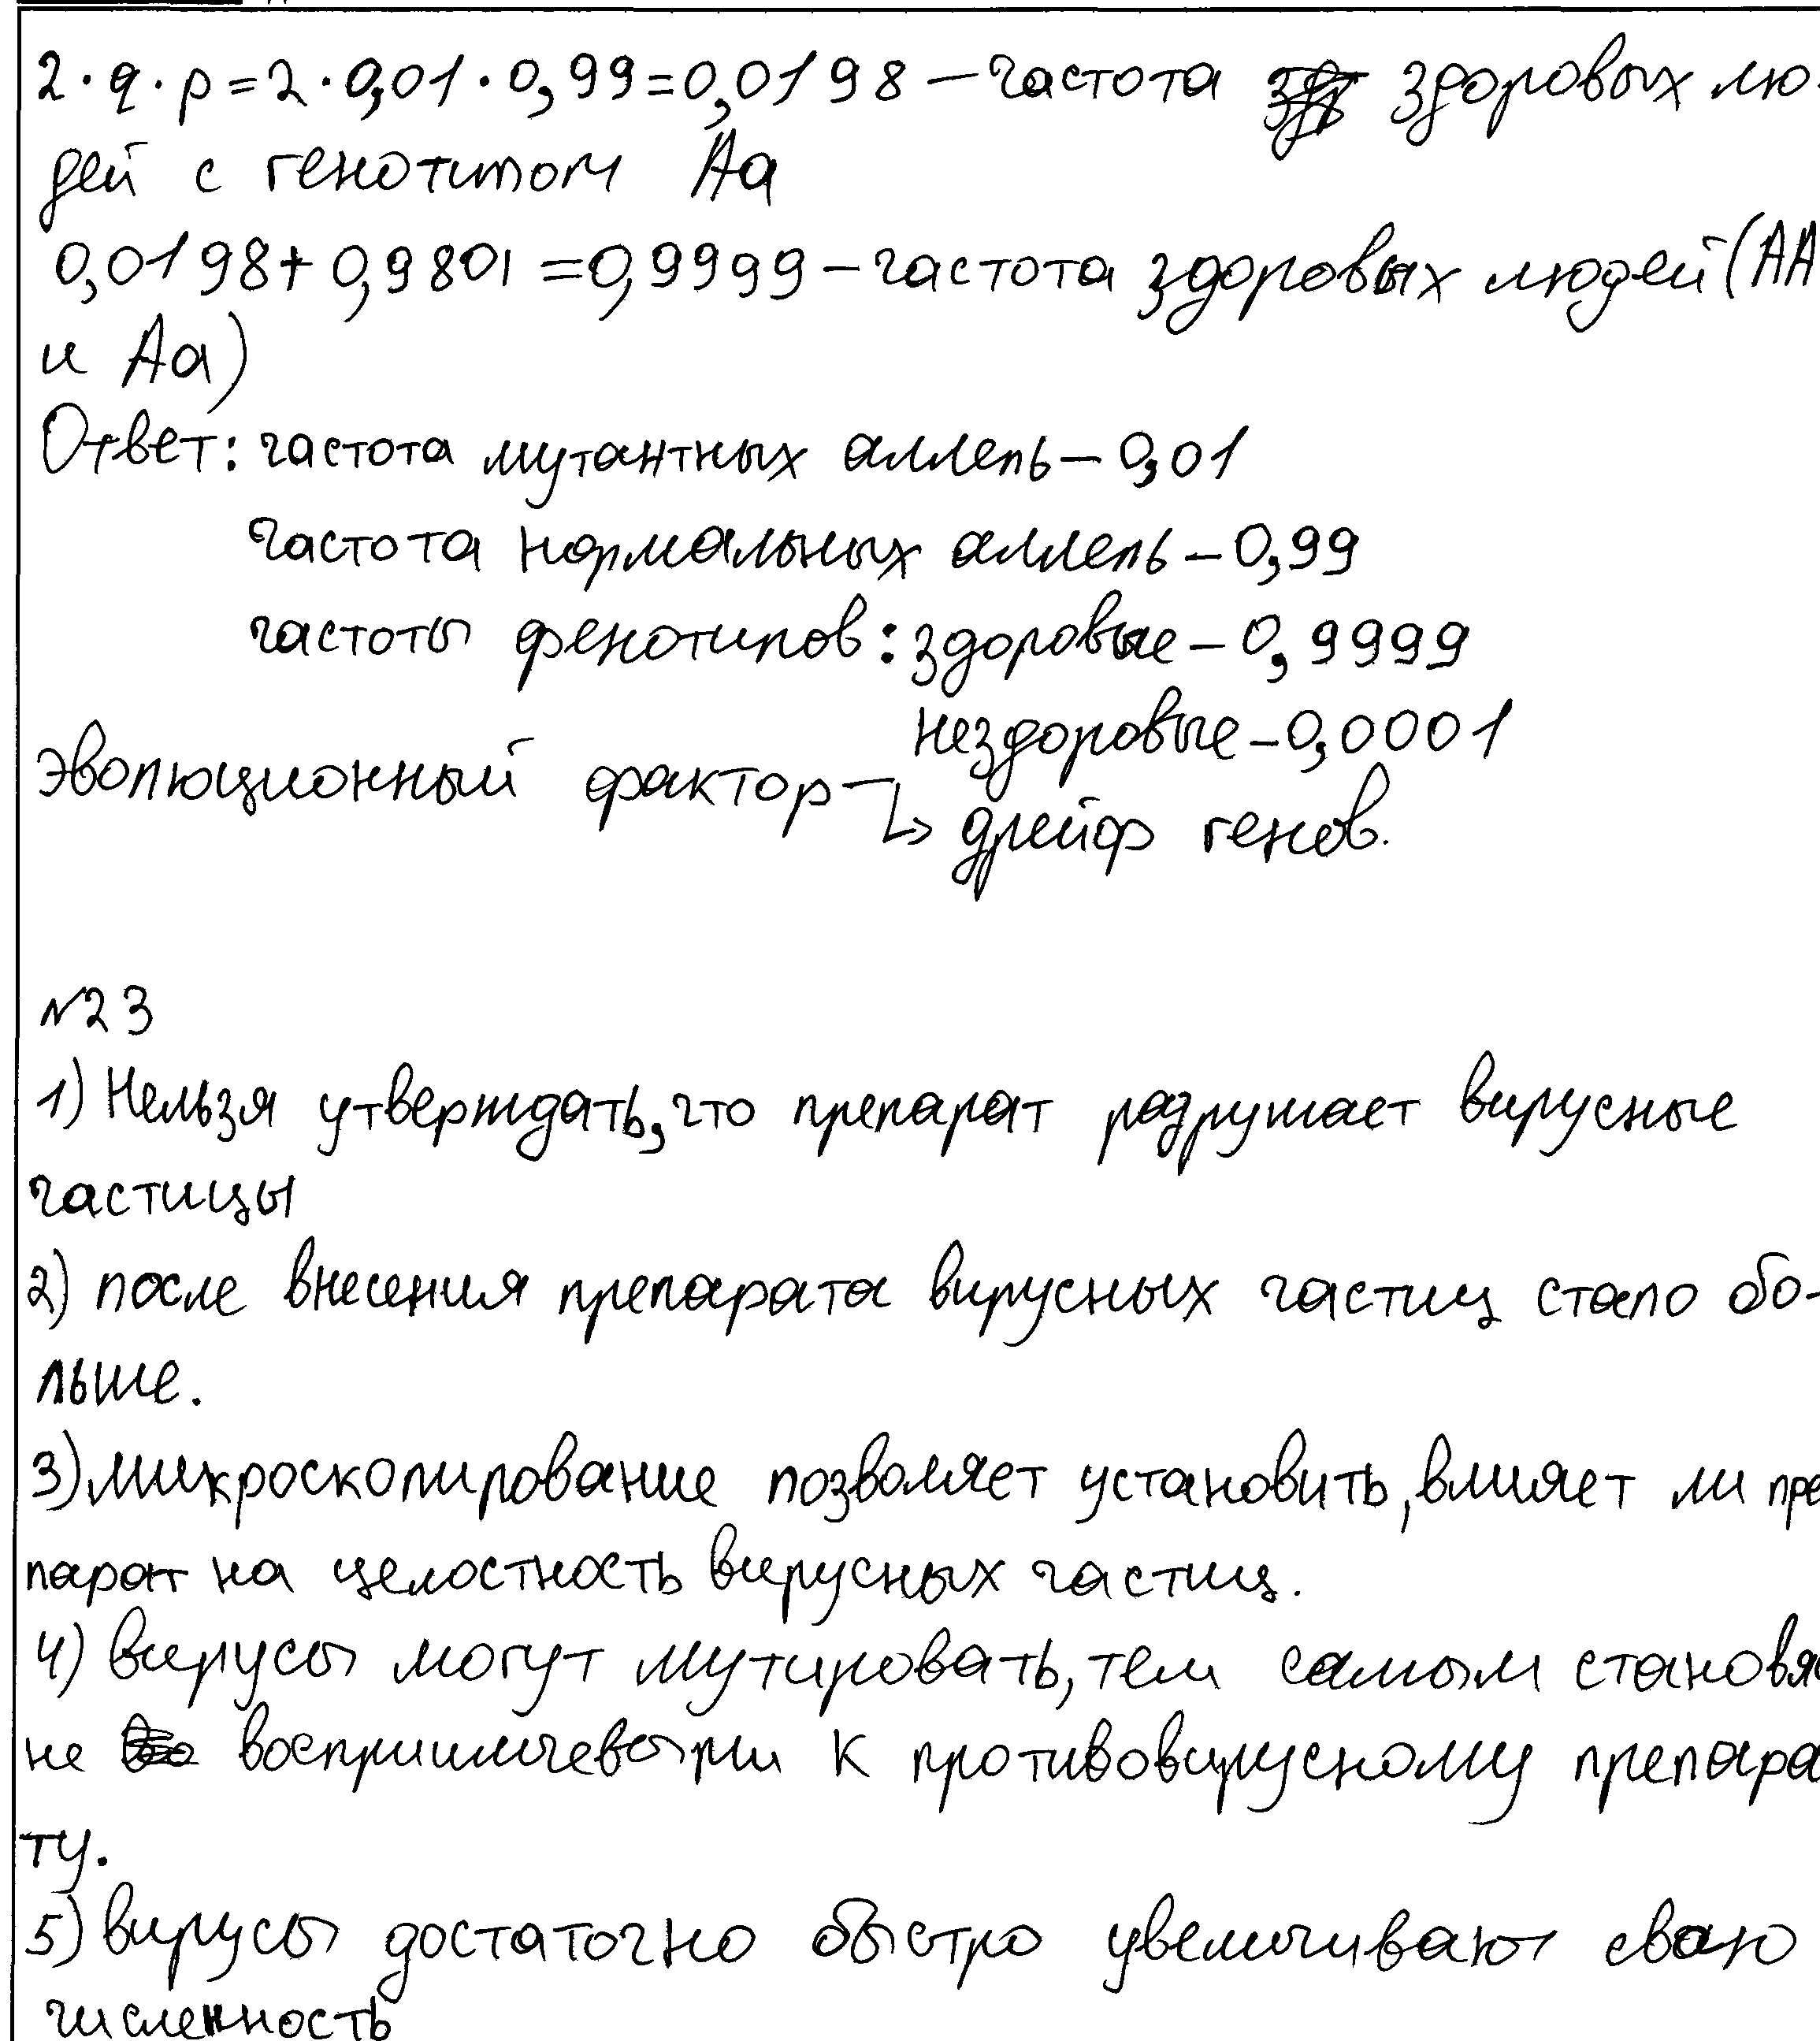 2·q·p=2·0,01·0,99=0,0198 – частота здоровых лю-
дей с генотипом Аа
0,0198+0,9801=0,9999 – частота здоровых людей (АА
и Аа)
Ответ: частота мутантных аллель – 0,01
частота нормальных аллель – 0,99
частоты фенотипов: здоровые – 0,9999
нездоровые – 0,0001
эволюционный фактор → дрейф генов.
№23
1) Нельзя утверждать, что препарат разрушает вирусные
частицы
2) после внесения препарата вирусных частиц стало бо-
льше.
3) микроскопирование позволяет установить, влияет ли пре
парат на целостность вирусных частиц.
4) вирусы могут мутировать, тем самым становя
не восприимчевыми к противовирусному препара
ту.
5) вирусы достаточно быстро увеличивают свою
численность